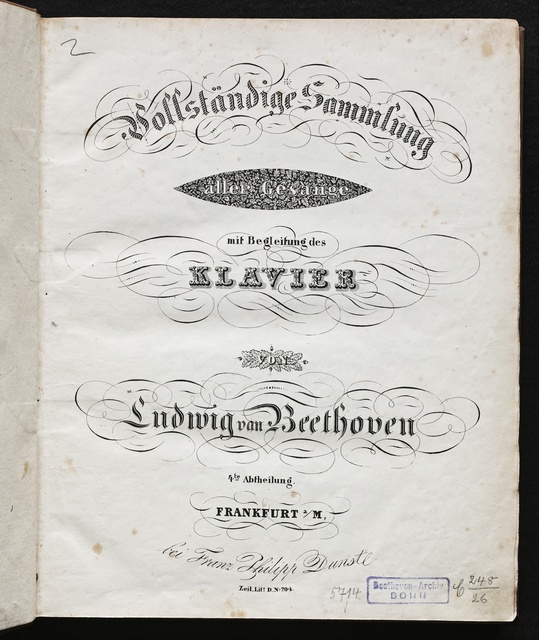 2
Vollständige Sammlung
aller Gesänge
mit Begleitung des
KLAVIER
VON
Ludwig van Beethoven
4te Abtheilung.
FRANKFURT a/M.
bei Franz Philipp Dunst
Zeil Litt D. No 204.
5414
Beethoven-Archiv
BONN
C 248/26